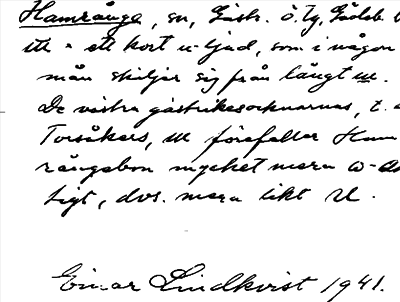 Hamrånge, sn, Gästr. ö. tg, Gävleb. l
ett - ett kort u-ljud, som i någon
mån skiljer sig från långt u.
De västra gästrikesocknarnas, t.
Torsåkers, u förefaller Ham
rångebon mycket mera ω-ar
tigt, dvs. mera likt u.
Einar Lindkvist 1941.